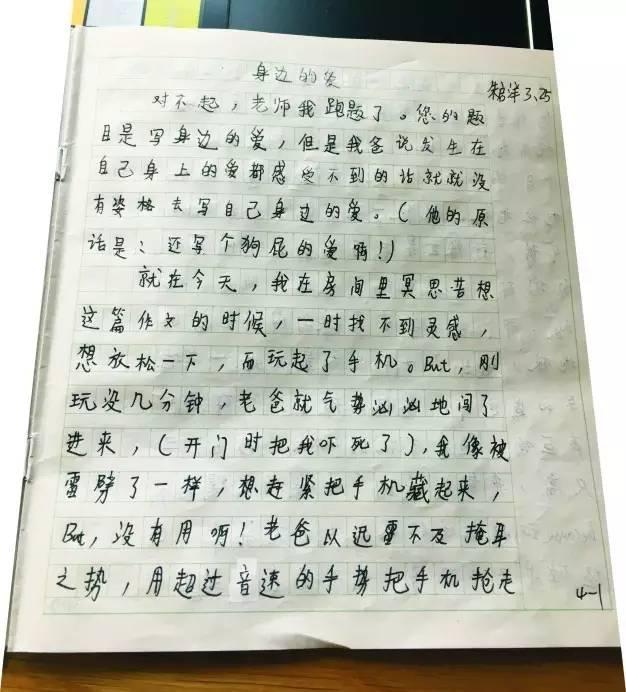 身边的爱
3.25
对不起，老师我跑题了。您的题
目是写身边的爱，但是我爸说发生在
自己身上的爱都感受不到的话就就没
有姿格去写自己身边的爱。（他的原
话是：还写个狗屁的爱啊！）
就在今天，我在房间里冥思昔想
这篇作文的时候，一时找不到灵感，
想放松一下，而玩起了手机。But，刚
玩没几分钟，老爸就气势汹汹地闯了
进来，（开门时把我吓死了），我像被
雷劈了一样，想赶紧把手机藏起来，
But，没有用啊！老爸以迅雷不及掩耳
之势，用超过音速的手势把手机抢走
4-1